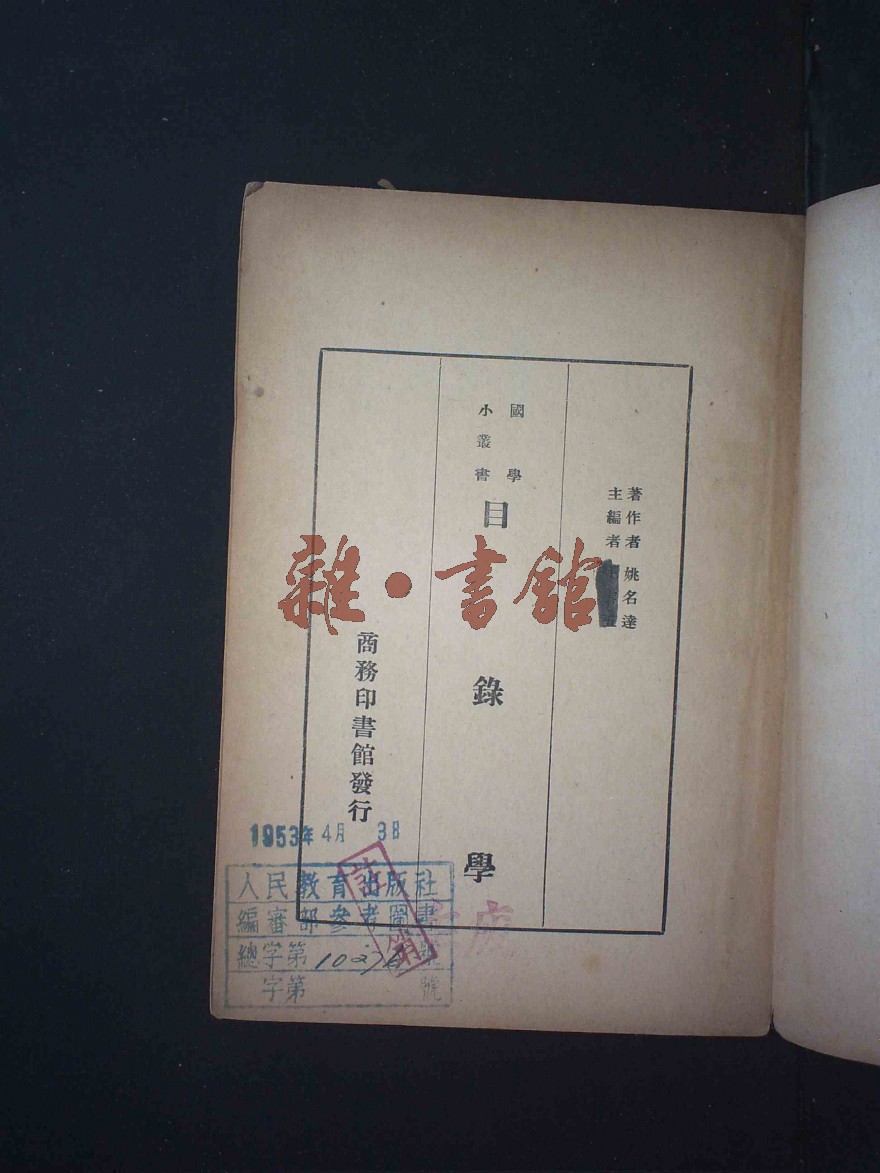 著作者 姚名達
主編者
國學
小叢書
目錄學
商務印書館發行
雜·書館
1953年4月3日
人民教育出版社
編審部參考圖書
總字第
字第 號